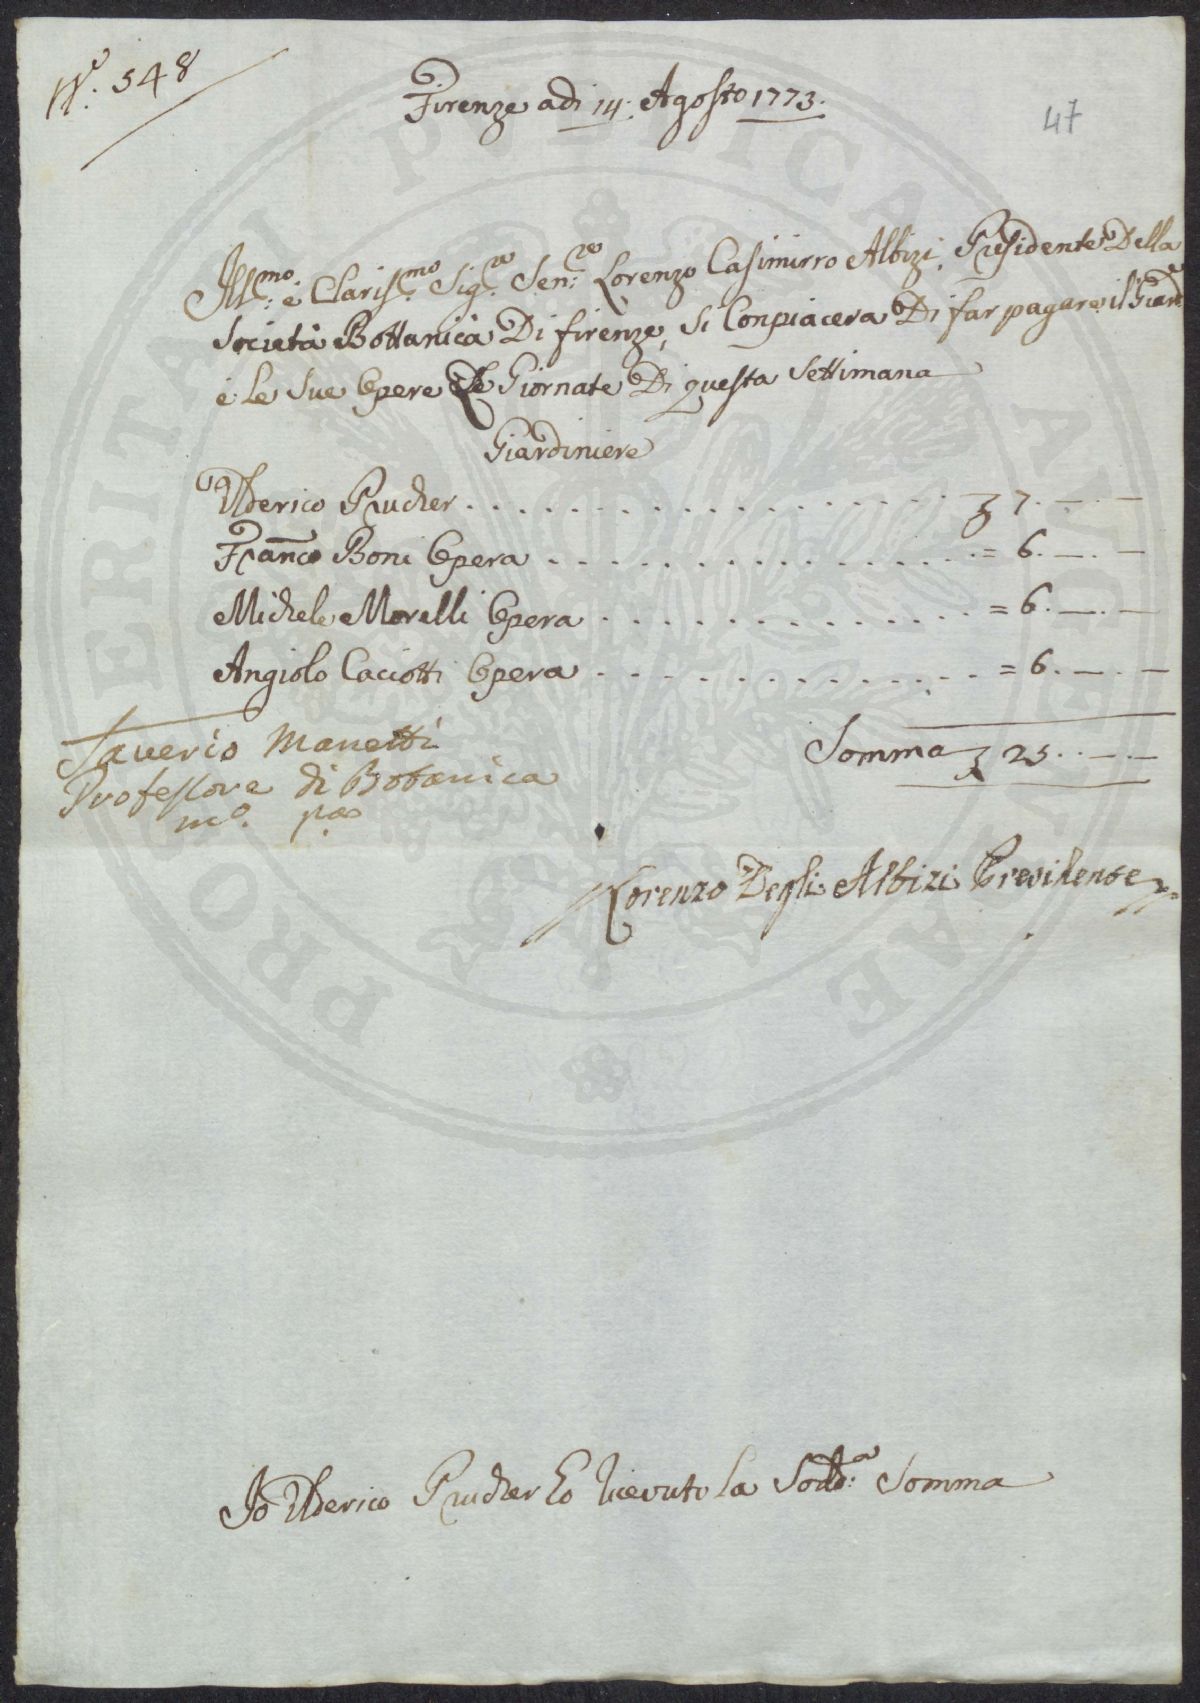 N.o 548
Firenze adi 14: Agosto 1773.
47
Ill:mo é Claris:mo Sig:re Sen:re Lorenzo Casimirro Albizi, Presidente Della
Società Bottanica Di firenze, Si Conpiacera Di far pagare il Giard:e
é Le Sue Opere Le Giornate Di questa Settimana
Giardiniere
Ulderico Prucher . . . . . . . . . . . . . . . . . . . 7. —. —
Franco Boni Opera . . . . . . . . . . . . . . . . = 6. —. —
Michele Morelli Opera . . . . . . . . . . . . . = 6. —. —
Angiolo Caciotti Opera . . . . . . . . . . . . . . = 6. —. —
Somma 25. —. —
Saverio Manetti
Professore di Botanica
mo. pa
Lorenzo Degli Albizi Presidente
Io Ulderico Prucher Ho ricevuto La Sodd:a Somma
PROSPERITATI PUBLICAE AUGENDAE